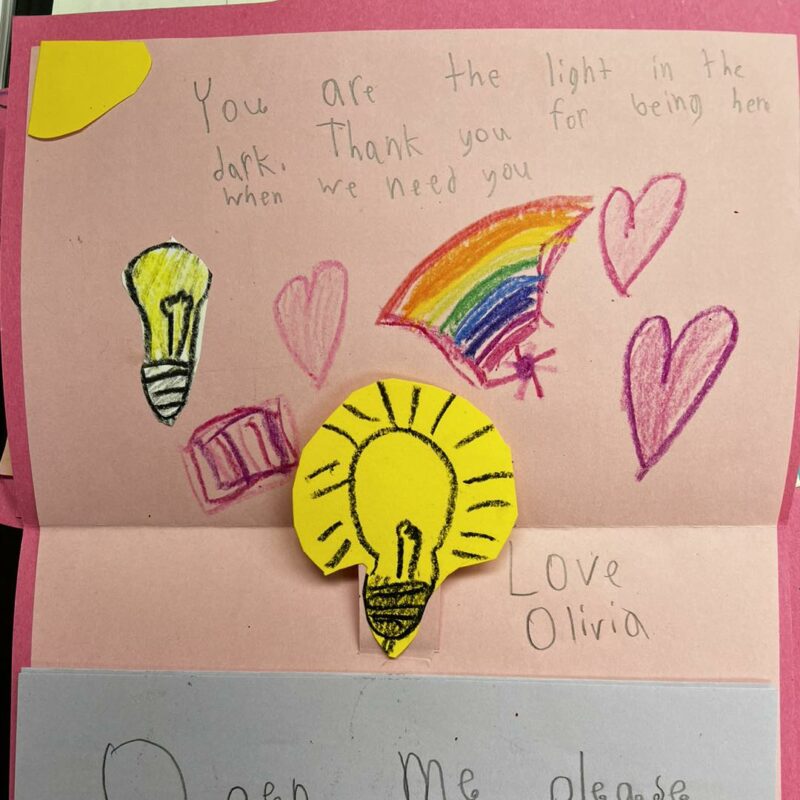 You are the light in the
dark. Thank you for being here
when we need you
Love
Olivia
Open Me please